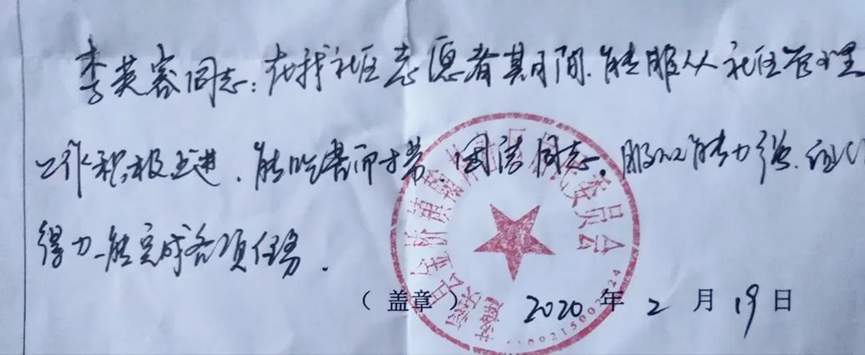 李英容同志：在我社区志愿者期间.能服从社区管理
工作积极上进、能吃苦而于劳.团结同志，服从能力强.
得力.能完成各项任务.
（盖章）2020年2月19日
委员会